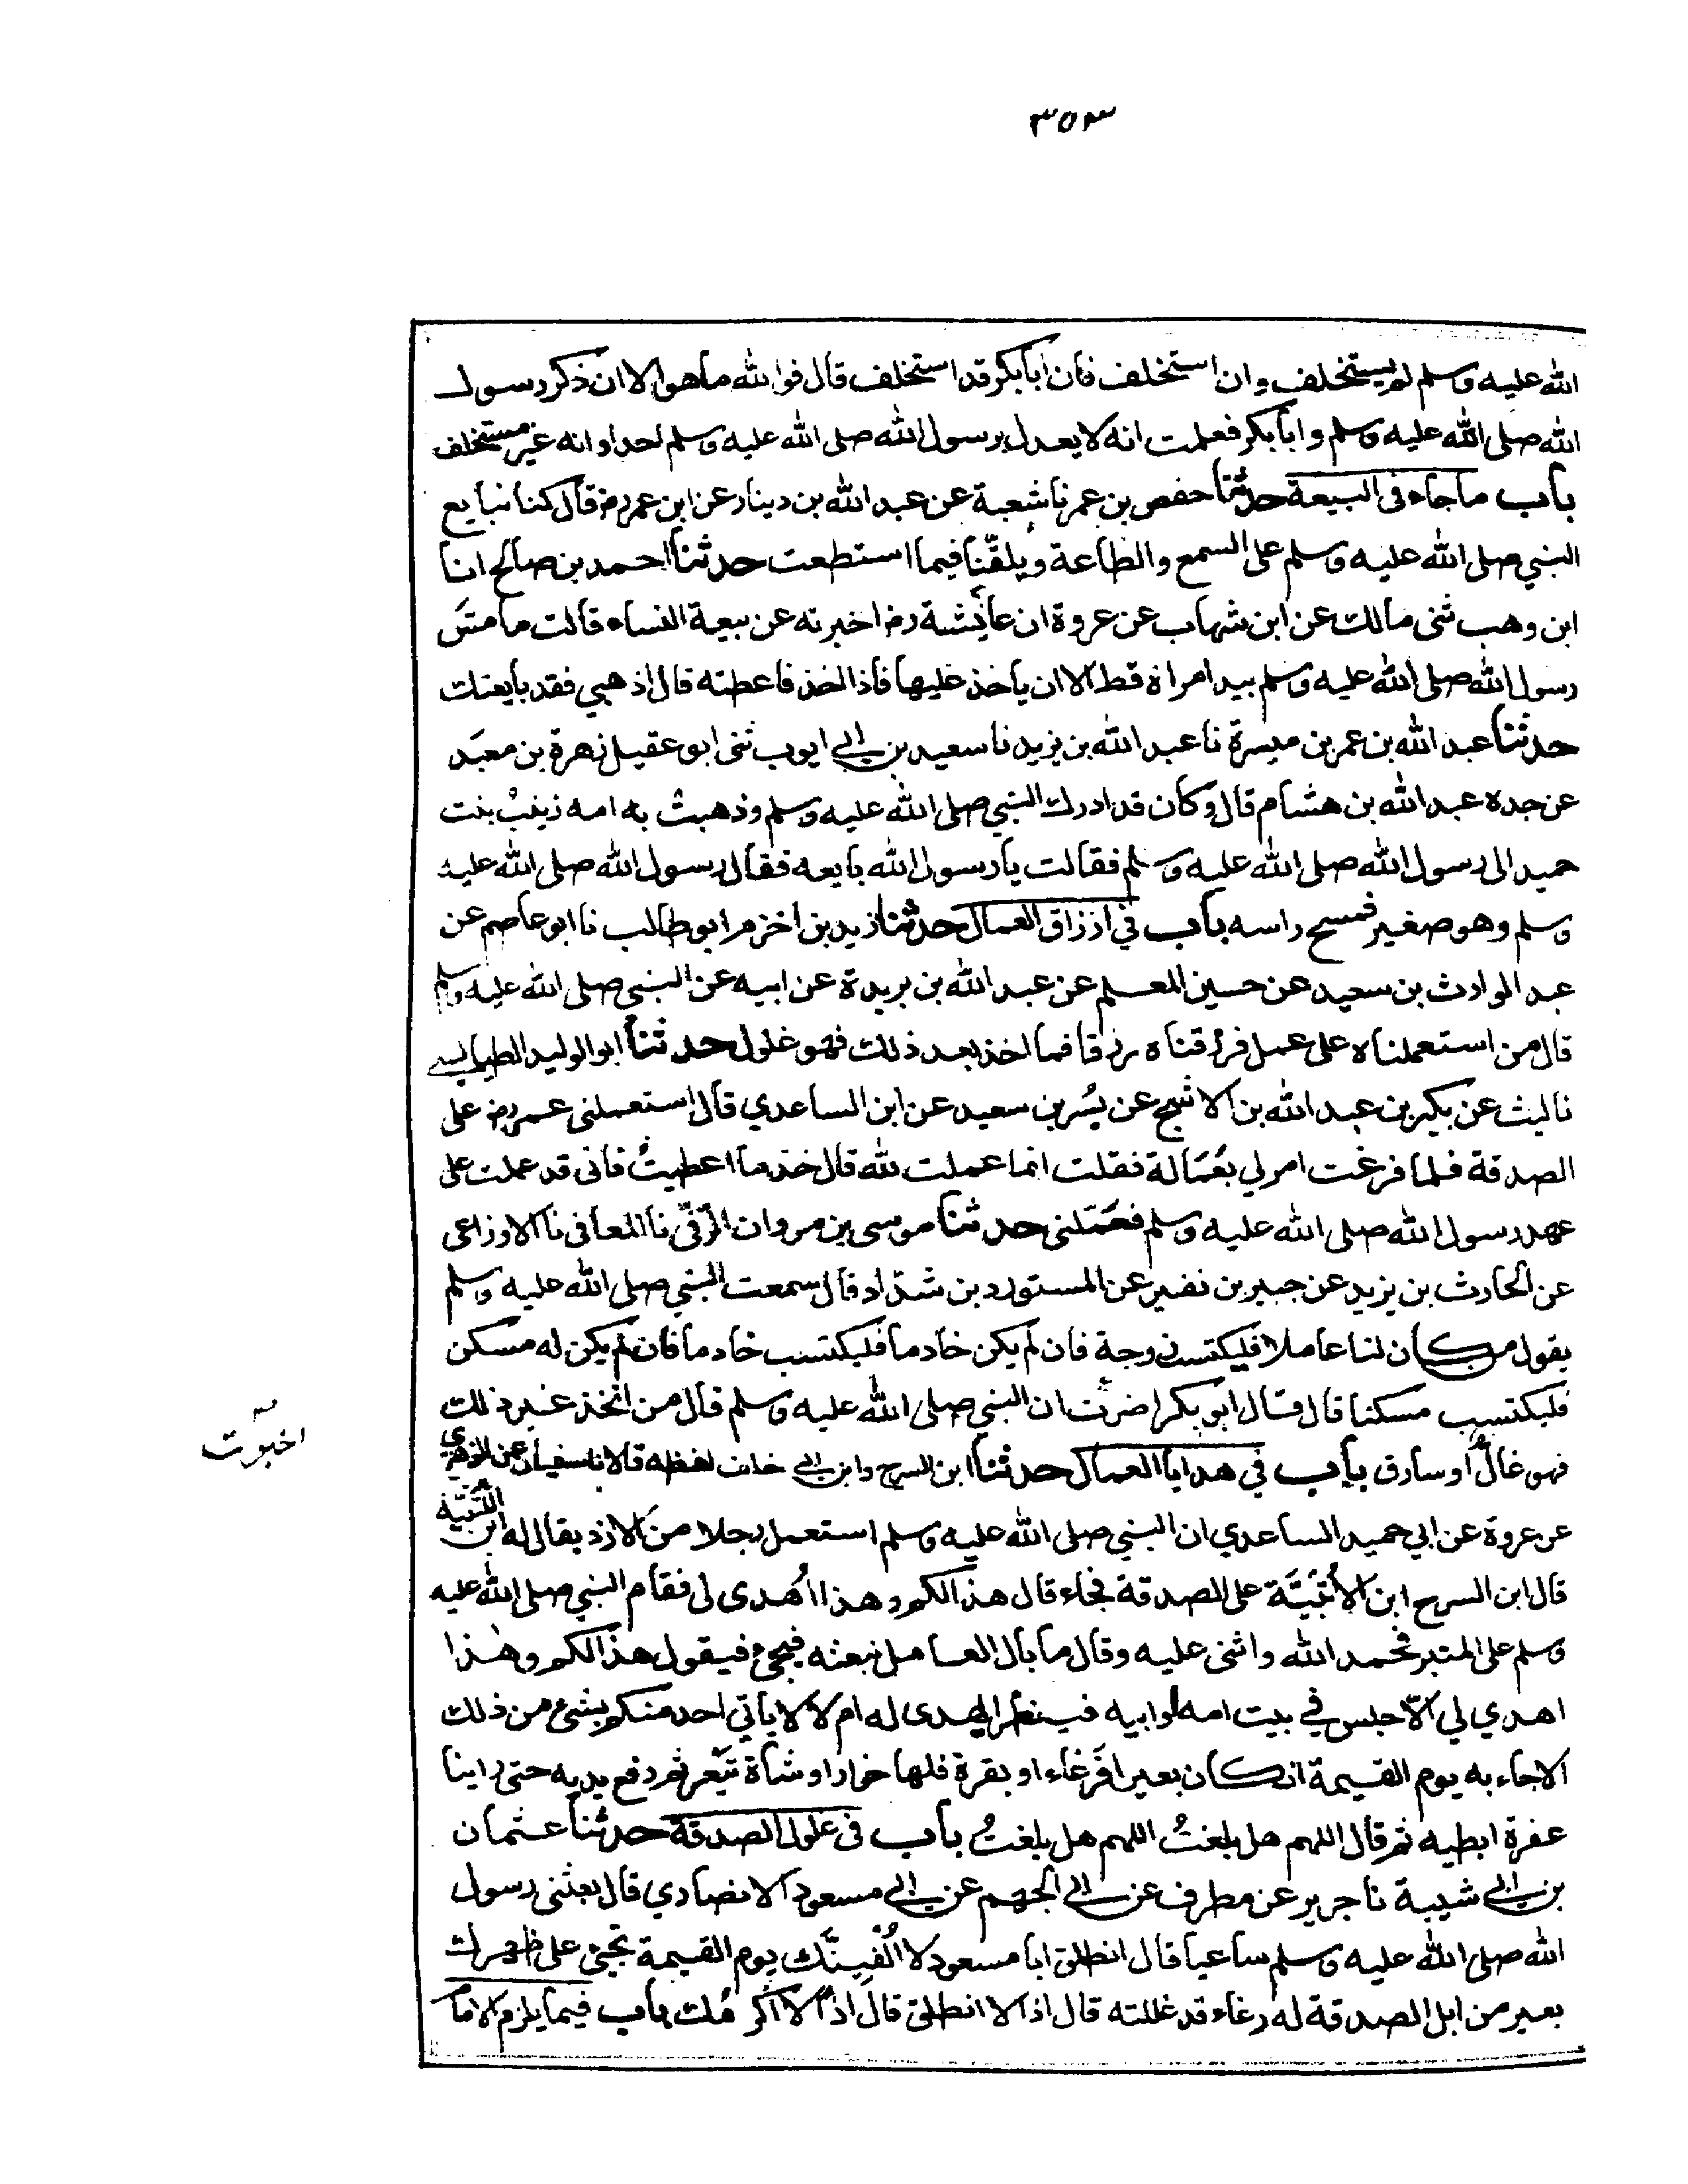 ٣٥٣
الله عليه وسلم لم يستخلف وان استخلف فان ابا بكر قد استخلف قال فوالله ما هو الا ان ذكر رسول
الله صلى الله عليه وسلم وابا بكر فعلمت انه لا يعدل برسول الله صلى الله عليه وسلم احدا وانه غير مستخلف
باب ما جاء فى البيعة حدثنا حفص بن عمر نا شعبة عن عبد الله بن دينار عن ابن عمر رض قال كنا نبايع
النبي صلى الله عليه وسلم على السمع والطاعة ويلقّنا فيما استطعت حدثنا احمد بن صالح انا
ابن وهب ثنى مالك عن ابن شهاب عن عروة ان عائشة رض اخبرته عن بيعة النساء قالت ما مسَّ
رسول الله صلى الله عليه وسلم بيد امراة قط الا ان ياخذ عليها فاذا اخذ فاعطته قال اذهبي فقد بايعتك
حدثنا عبد الله بن عمر بن ميسرة نا عبد الله بن يزيد نا سعيد بن ابي ايوب ثنى ابو عقيل زهرة بن معبَد
عن جده عبد الله بن هشام قال وكان قد ادرك النبي صلى الله عليه وسلم وذهبتْ به امه زينبُ بنت
حميد الى رسول الله صلى الله عليه وسلم فقالت يا رسول الله بايعه فقال رسول الله صلى الله عليه
وسلم وهو صغير فمسح راسه باب في ارزاق العمال حدثنا زيد بن اخزم ابو طالب نا ابو عاصم عن
عبد الوارث بن سعيد عن حسين المعلم عن عبد الله بن بريدة عن ابيه عن النبي صلى الله عليه وسلم
قال من استعملناه على عمل فرزقناه رزقا فما اخذ بعد ذلك فهو غلول حدثنا ابو الوليد الطيالسي
نا ليث عن بكير بن عبد الله بن الاشج عن بُسر بن سعيد عن ابن الساعدي قال استعملنى عمر رض على
الصدقة فلما فرغت امر لي بعُمَالة فقلت انما عملت لله قال خذ ما اعطيتُ فانى قد عملت على
عهد رسول الله صلى الله عليه وسلم فعَمّلنى حدثنا موسى بن مروان الرَّقىّ نا المعافى نا الاوزاعى
عن الحارث بن يزيد عن جبير بن نفير عن المستورد بن شدّاد قال سمعت النبي صلى الله عليه وسلم
يقول من كان لنا عاملا فليكتسب زوجة فان لم يكن خادما فليكتسب خادما فان لم يكن له مسكن
فليكتسب مسكنا قال قال ابو بكر اخبرت ان النبي صلى الله عليه وسلم قال من اتخذ غير ذلك
اخبرت
فهو غالٌّ او سارق باب في هدايا العمال حدثنا ابن السرح وابن ابي خلف لفظه قالا نا سفيان عن الزهري
عن عروة عن ابي حميد الساعدي ان النبي صلى الله عليه وسلم استعمل رجلا من الازد يقال له ابن اللُّتبيّة
قال ابن السرح ابن الاُتبيَّة على الصدقة فجاء قال هذا لكم وهذا اُهدى لى فقام النبي صلى الله عليه
وسلم على المنبر فحمد الله واثنى عليه وقال ما بال العامل نبعثه فيجئ فيقول هذا لكم وهذا
اهدي لي الاّ جلس في بيت امه او ابيه فينظر ايهدى له ام لا لا ياتي احد منكم بشئ من ذلك
الا جاء به يوم القيمة ان كان بعيرا فرغاء او بقرة فلها خوار او شاة تيْعر ثم رفع يديه حتى راينا
عفرة ابطيه ثم قال اللهم هل بلغتُ اللهم هل بلغتُ باب فى غلول الصدقة حدثنا عثمان
بن ابي شيبة نا جرير عن مطرف عن ابي الجهم عن ابي مسعود الانصاري قال بعثنى رسول
الله صلى الله عليه وسلم ساعيا قال انطلق ابا مسعود لا اُلْفينَّك يوم القيمة تجئ على ظهرك
بعير من ابل الصدقة له رغاء قد غللته قال اذا لا انطلق قال اذًا لا اُكرهُك باب فيما يلزم الاما